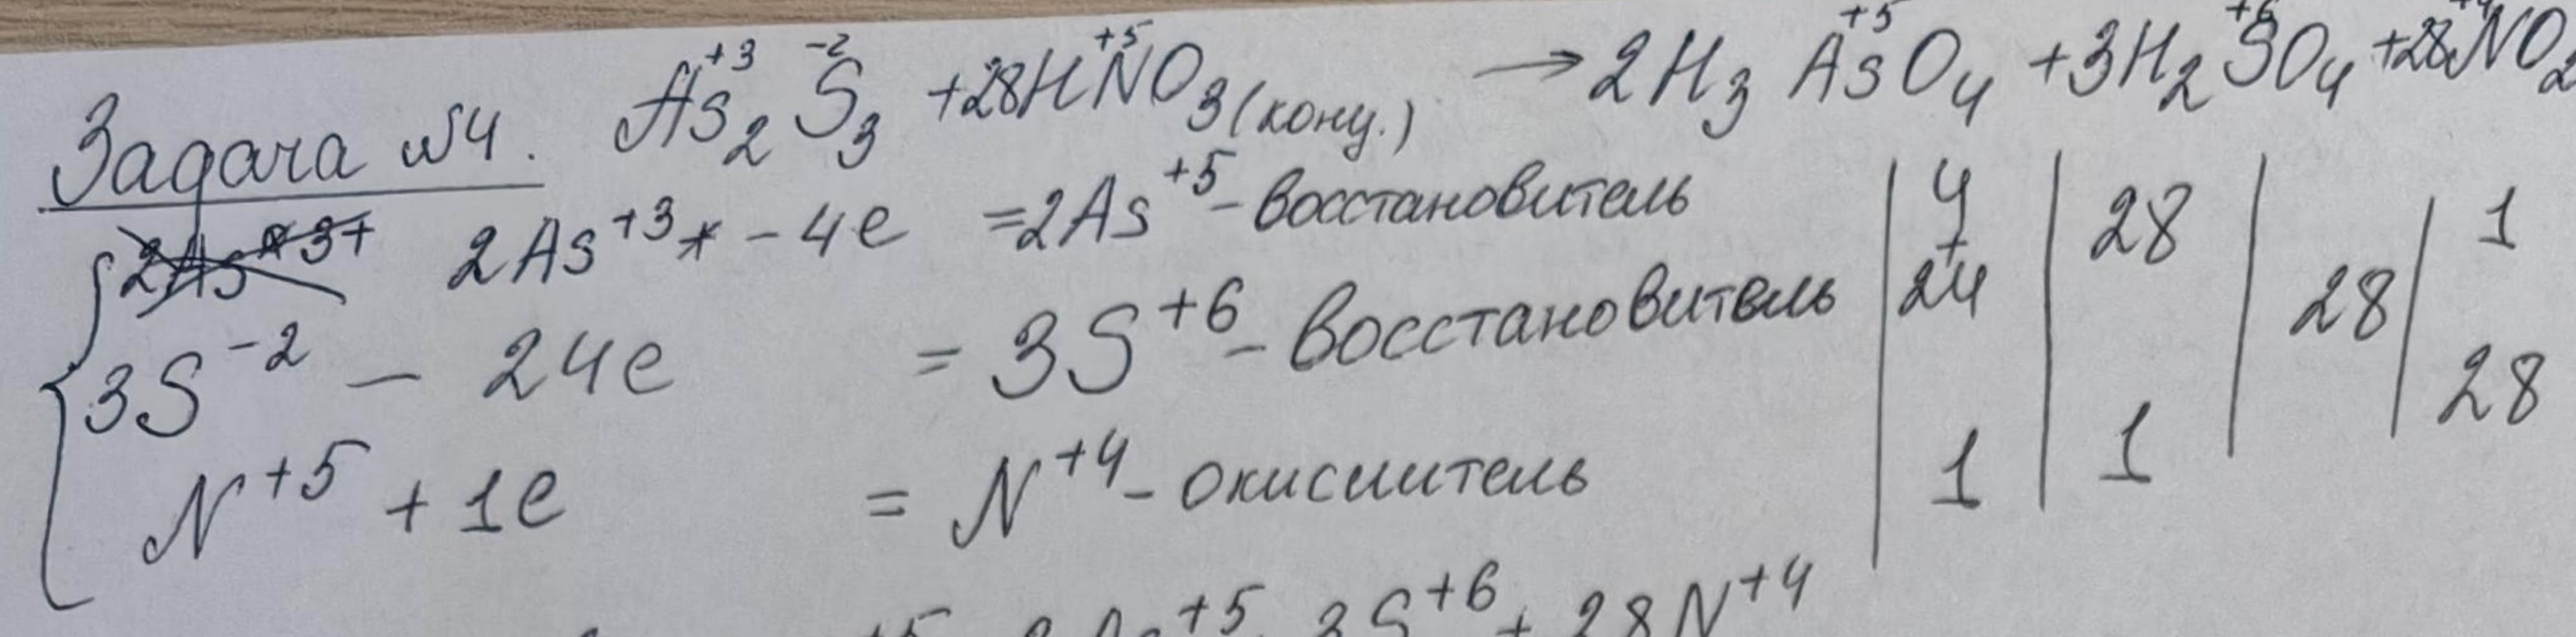 Задача №4. As₂⁺³ S₃⁻² + 28HN⁺⁵O₃ (конц.) → 2H₃As⁺⁵O₄ + 3H₂S⁺⁶O₄ + 28N⁺⁴O₂
2As⁺³ - 4e = 2As⁺⁵ - восстановитель | 4 + | 28 | | 1
3S⁻² - 24e = 3S⁺⁶ - восстановитель | 24 | | 28 |
N⁺⁵ + 1e = N⁺⁴ - окислитель | 1 | 1 | | 28
+5 2As⁺⁵ 3S⁺⁶ + 28N⁺⁴